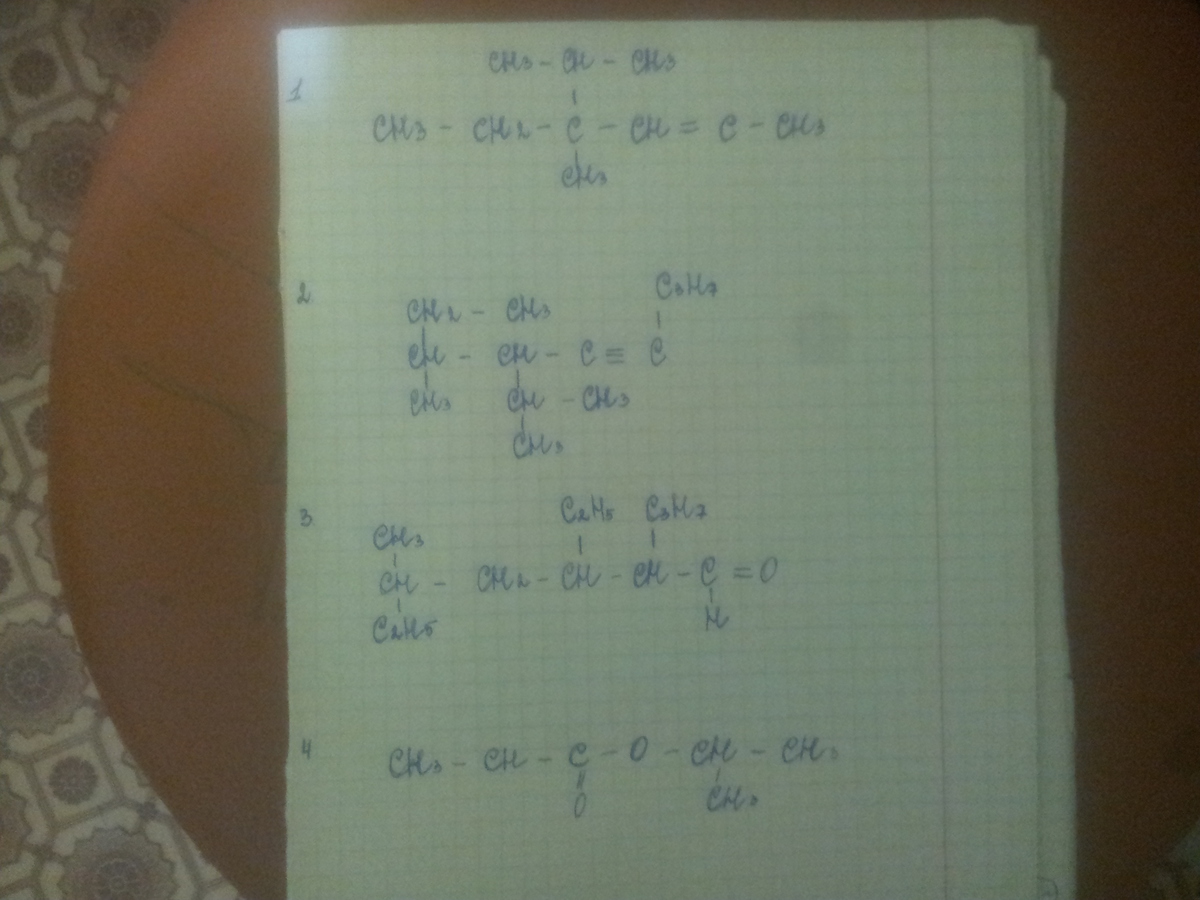 CH3 - CH - CH3
1
CH3 - CH2 - C - CH = C - CH3
CH3
2
C3H7
CH2 - CH3
CH - CH - C ≡ C
CH3 CH - CH3
CH3
3
C2H5 C3H7
CH3
CH - CH2 - CH - CH - C = O
C2H5 H
4
CH3 - CH - C - O - CH - CH3
O CH3